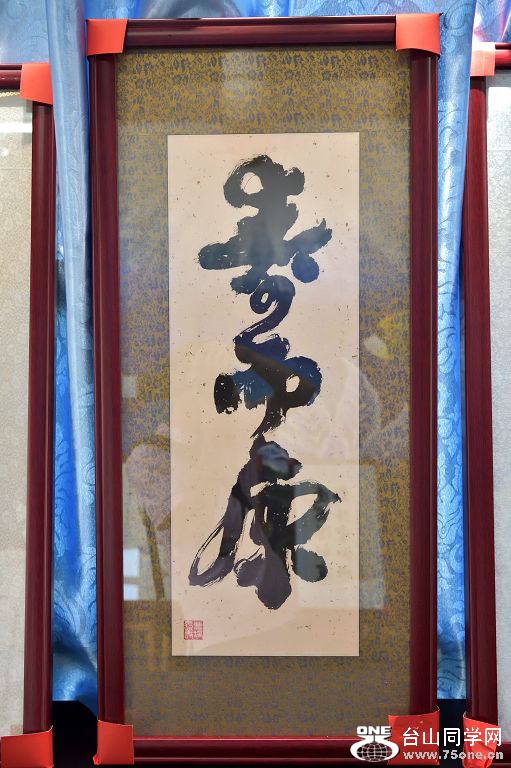 壽而康
ONE
台山同学网
www.75one.cn